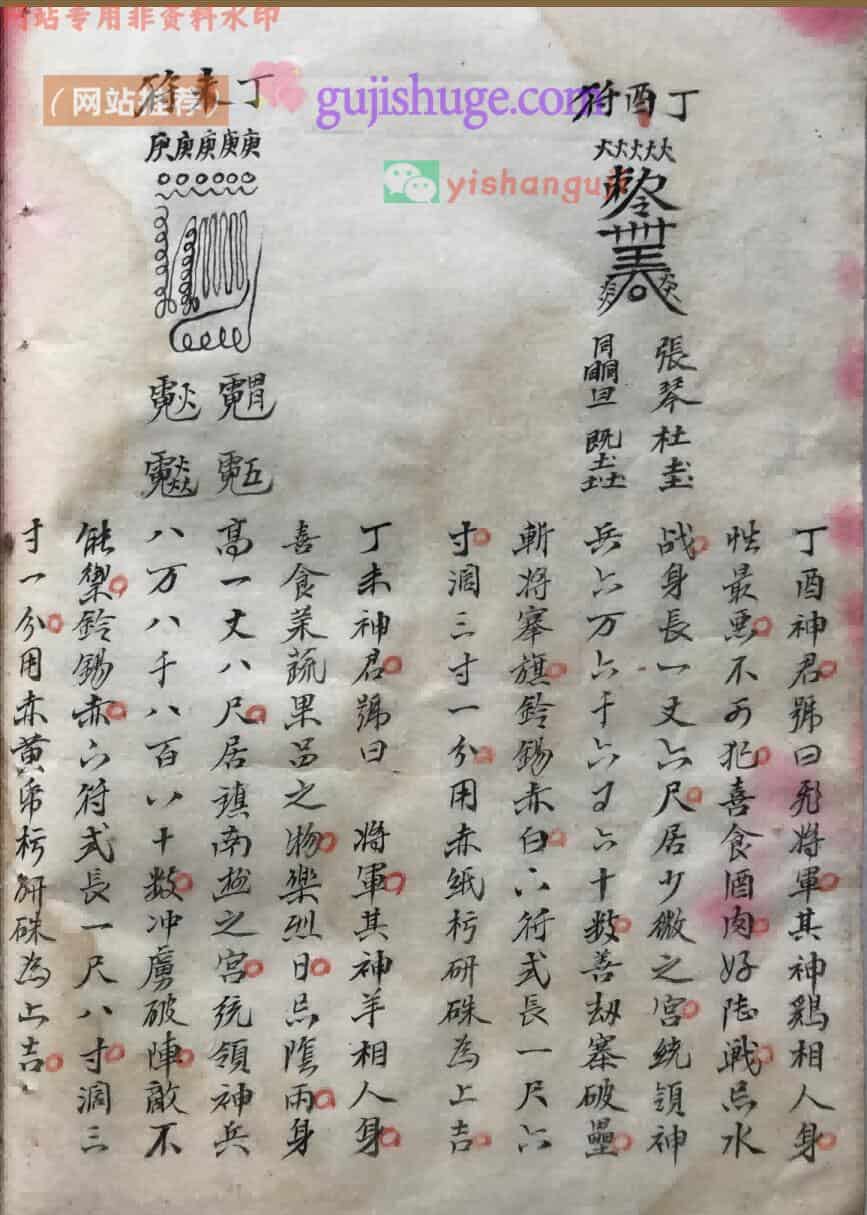 网站专用非资料水印
（网站推荐）
gujishuge.com
yishangu
丁酉符
火火火火火
張琴杜
丁酉神君號曰飛將軍其神鷄相人身
性最惡不可犯喜食酒肉好陸戰忌水
战身長一丈六尺居少微之宮統領神
兵六万六千六百六十數善刼寨破壘
斬將搴旗鈴錫赤白六符式長一尺六
寸濶三寸一分用赤紙杇研硃為上吉
丁未符
庚庚庚庚庚
丁未神君號曰 將軍其神羊相人身
喜食菜蔬果品之物樂烈日忌陰雨身
高一丈八尺居鎮南極之宮統領神兵
八万八千八百八十數冲虜破陣敵不
能禦鈴錫赤六符式長一尺八寸濶三
寸一分用赤黃帋杇研硃為上吉